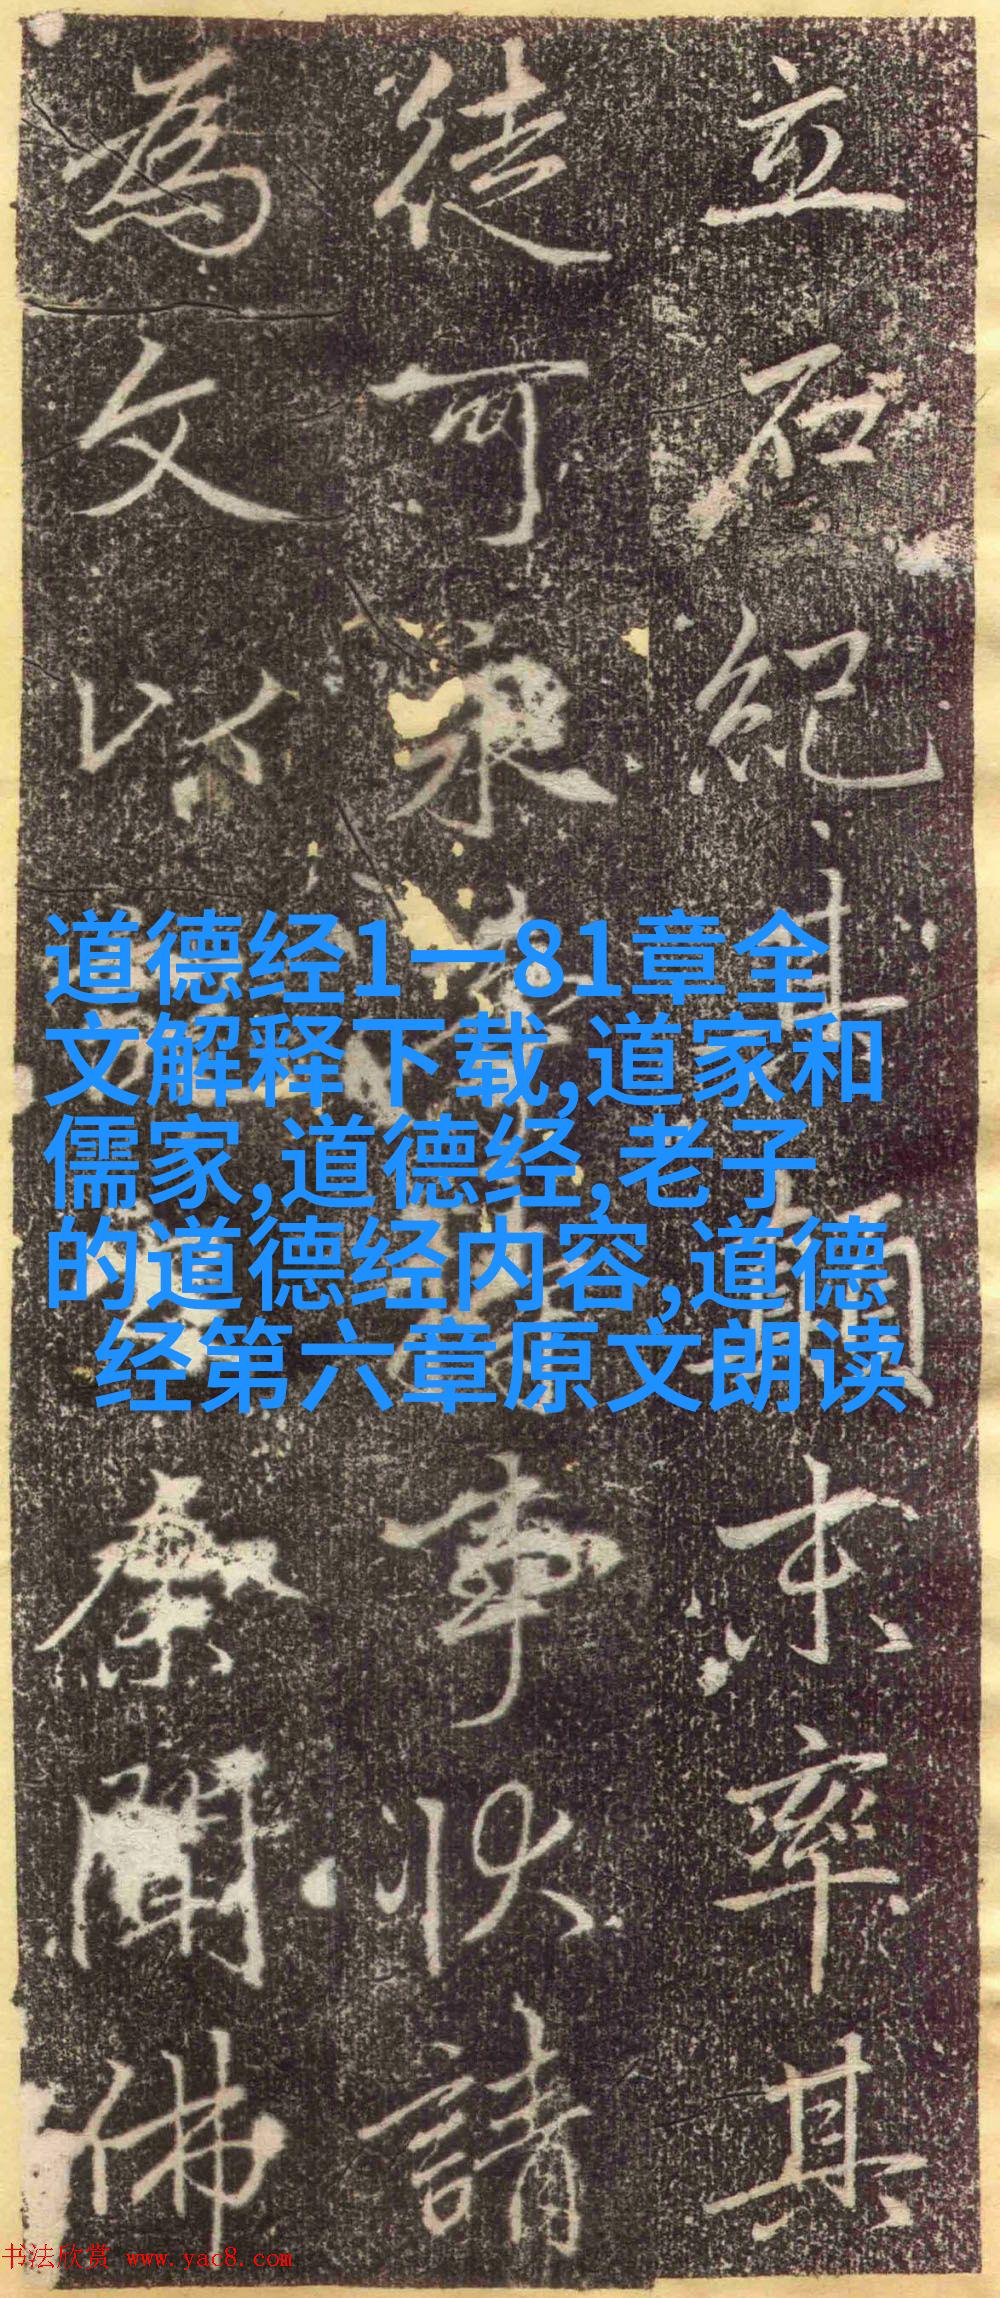 立石紀其顛末率其
徒可永事狀請
為文以聞佛
道德经1一81章全
文解释下载,道家和
儒家,道德经,老子
的道德经内容,道德
经第六章原文朗读
书法欣赏 www.yac8.com